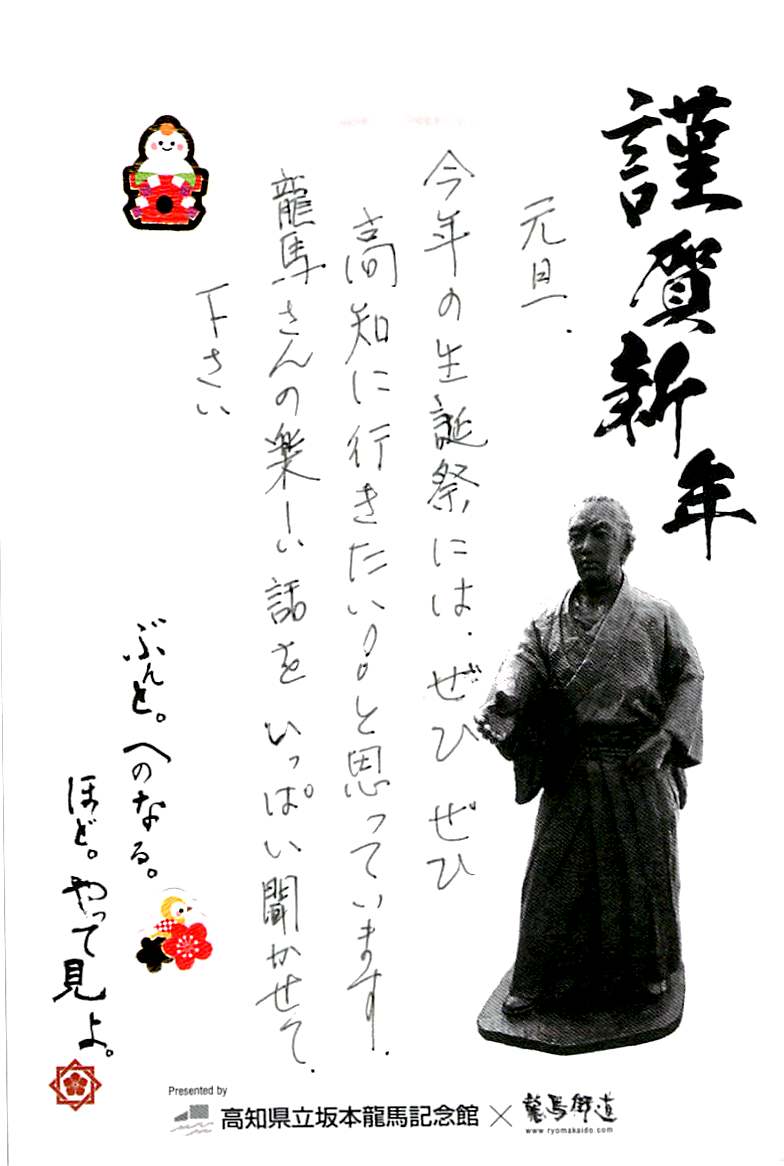 謹賀新年
元旦.
今年の生誕祭には.ぜひぜひ
高知に行きたい!!と思っています.
龍馬さんの楽しい話をいっぱい聞かせて.
下さい
ぶんと。へのなる。
ほど。やって見よ。
Presented by
高知県立坂本龍馬記念館×龍馬街道
www.ryomakaido.com